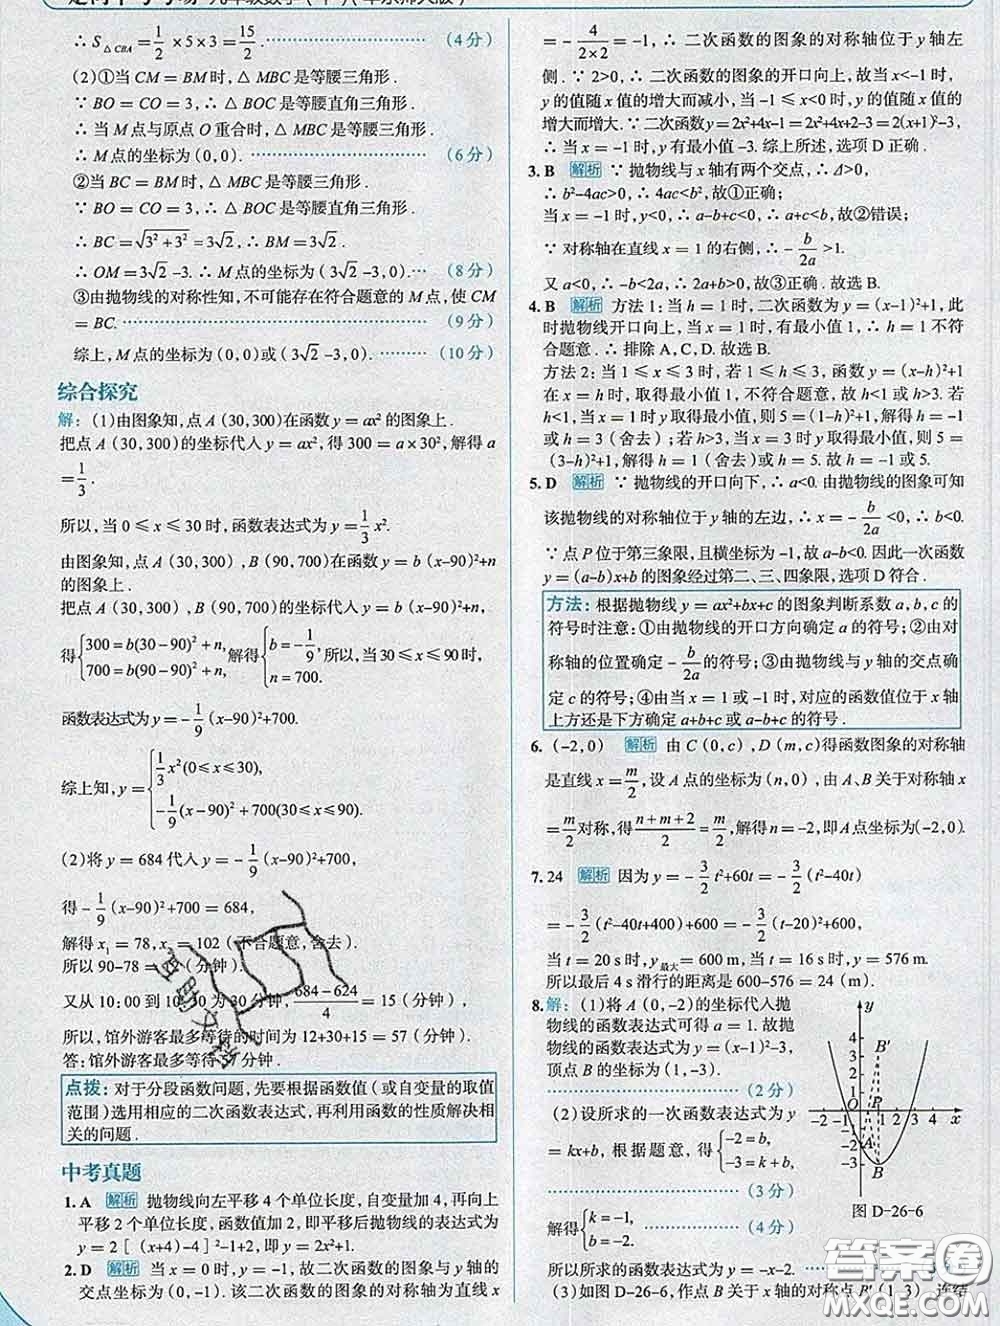 走向中考考场·九年级数学(下)(华东师大版)
∴ S△CBA = 1/2 ×5×3 = 15/2 . ……………… (4分)
(2)①当 CM = BM 时, △ MBC 是等腰三角形 .
∵ BO = CO = 3, ∴ △ BOC 是等腰直角三角形 .
∴ 当 M 点与原点 O 重合时, △ MBC 是等腰三角形 .
∴ M 点的坐标为 (0, 0) . ……………… (6分)
②当 BC = BM 时, △ MBC 是等腰三角形 .
∵ BO = CO = 3, ∴ △ BOC 是等腰直角三角形 .
∴ BC = √(3²+3²) = 3√2 , ∴ BM = 3√2 .
∴ OM = 3√2 -3. ∴ M 点的坐标为 (3√2 -3, 0). … (8分)
③由抛物线的对称性知, 不可能存在符合题意的 M 点, 使 CM
= BC. ……………… (9分)
综上, M 点的坐标为 (0, 0) 或 (3√2 -3, 0) . ……… (10分)
综合探究
解: (1)由图象知, 点 A (30, 300)在函数 y = ax² 的图象上 .
把点 A (30, 300)的坐标代入 y = ax², 得 300 = a×30², 解得 a
= 1/3 .
所以, 当 0 ≤ x ≤ 30 时, 函数表达式为 y = 1/3 x².
由图象知, 点 A (30, 300), B (90, 700)在函数 y = b (x-90)²+n
的图象上 .
把点 A (30, 300), B (90, 700)的坐标代入 y = b (x-90)²+n,
得 { 300 = b(30-90)² + n, 700 = b(90-90)² + n, 解得 { b = -1/9, n = 700. 所以, 当 30 ≤ x ≤ 90 时,
函数表达式为 y = -1/9 (x-90)²+700.
综上知, y = { 1/3 x²(0≤x≤30), -1/9 (x-90)² +700(30≤x≤90).
(2)将 y = 684 代入 y = -1/9 (x-90)²+700,
得 -1/9 (x-90)²+700 = 684,
解得 x₁ = 78, x₂ = 102 (不合题意, 舍去) .
所以 90-78 = (分钟) .
又从 10:00 到 10:30 为 30 分钟, (684-624)/4 = 15 (分钟) ,
所以, 馆外游客最多等待的时间为 12+30+15 = 57 (分钟) .
答: 馆外游客最多等待 57 分钟 .
点拨: 对于分段函数问题, 先要根据函数值 (或自变量的取值
范围) 选用相应的二次函数表达式, 再利用函数的性质解决相
关的问题 .
中考真题
1. A 解析 抛物线向左平移 4 个单位长度, 自变量加 4, 再向上
平移 2 个单位长度, 函数值加 2, 即平移后抛物线的表达式为
y = 2 [ (x+4)-4 ]²-1+2, 即 y = 2x²+1.
2. D 解析 当 x = 0 时, y = -1, 故二次函数的图象与 y 轴的
交点坐标为 (0, -1) . 该二次函数的图象的对称轴为直线 x
= - 4/(2×2) = -1, ∴ 二次函数的图象的对称轴位于 y 轴左
侧 . ∵ 2>0, ∴ 二次函数的图象的开口向上, 故当 x<-1 时,
y 的值随 x 值的增大而减小, 当 -1 ≤ x<0 时, y 的值随 x 值的
增大而增大. ∵ 二次函数 y = 2x²+4x-1 = 2x²+4x+2-3 = 2(x+1)²-3,
∴ 当 x = -1 时, y 有最小值 -3. 综上所述, 选项 D 正确 .
3. B 解析 ∵ 抛物线与 x 轴有两个交点, ∴ Δ>0,
∴ b²-4ac>0, ∴ 4ac<b², 故①正确;
当 x = -1 时, y<0, ∴ a-b+c<0, ∴ a+c<b, 故②错误;
∵ 对称轴在直线 x = 1 的右侧, ∴ - b/2a >1.
又 a<0, ∴ -b<2a, ∴ 2a+b>0, 故③正确 . 故选 B.
4. B 解析 方法 1: 当 h = 1 时, 二次函数为 y = (x-1)²+1, 此
时抛物线开口向上, 当 x = 1 时, 有最小值 1, ∴ h = 1 不符
合题意 . ∴ 排除 A, C, D. 故选 B.
方法 2: 当 1 ≤ x ≤ 3 时, 若 1 ≤ h ≤ 3, 函数 y = (x-h)²+1
在 x = h 时, 取得最小值 1, 不符合题意, 故 h<1 或 h>3. 若
h<1, 当 x = 1 时 y 取得最小值, 则 5 = (1-h)²+1, 解得 h = -1
或 h = 3 (舍去) ; 若 h>3, 当 x = 3 时 y 取得最小值, 则 5 =
(3-h)²+1, 解得 h = 1 (舍去) 或 h = 5. 故 h = -1 或 5.
5. D 解析 ∵ 抛物线的开口向下, ∴ a<0. 由抛物线的图象可知
该抛物线的对称轴位于 y 轴的左边, ∴ x = - b/2a <0, ∴ b<0.
∵ 点 P 位于第三象限, 且横坐标为 -1, 故 a-b<0. 因此一次函数
y = (a-b)x+b 的图象经过第二、三、四象限, 选项 D 符合 .
方法: 根据抛物线 y = ax²+bx+c 的图象判断系数 a, b, c 的
符号时注意: ①由抛物线的开口方向确定 a 的符号; ②由对
称轴的位置确定 - b/2a 的符号; ③由抛物线与 y 轴的交点确
定 c 的符号; ④由当 x = 1 或 -1 时, 对应的函数值位于 x 轴
上方还是下方确定 a+b+c 或 a-b+c 的符号 .
6. (-2, 0) 解析 由 C (0, c) , D (m, c)得函数图象的对称轴
是直线 x = m/2 , 设 A 点的坐标为 (n, 0) , 由 A、B 关于对称轴 x
= m/2 对称, 得 (n+m+2)/2 = m/2 , 解得 n = -2, 即 A 点坐标为 (-2, 0).
7. 24 解析 因为 y = -3/2 t²+60t = -3/2 (t²-40t)
= -3/2 (t²-40t+400)+600 = -3/2 (t-20)²+600,
当 t = 20 s 时, y最大 = 600 m, 当 t = 16 s 时, y = 576 m.
所以最后 4 s 滑行的距离是 600-576 = 24 (m) .
8. 解: (1)将 A (0, -2) 的坐标代入抛
物线的函数表达式可得 a = 1. 故抛
物线的函数表达式为 y = (x-1)²-3,
顶点 B 的坐标为 (1, -3) .
……………… (2分)
(2)设所求的一次函数表达式为 y
= kx+b, 根据题意, 得 { -2 = b, -3 = k+b,
……………… (3分)
解得 { k = -1, b = -2. ……………… (4分)
y
4
3 B′
2
1
-2 -1 O P 1 2 3 4 x
-1
A
-3 B
图 D-26-6
所以所求的函数表达式为 y = -x-2.
(3)如图 D-26-6, 作点 B 关于 x 轴的对称点 B′ (1, 3) . 连结
答案圈
MXQE.COM